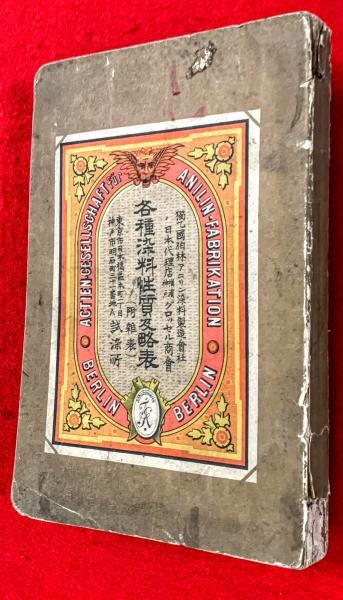 ACTIEN-GESELLSCHAFT FÜR ANILIN-FABRIKATION
BERLIN
BERLIN
獨乙國伯林アニリン染料製造會社
日本代理店
グロッセル商會
各種染料性質及略表
附雑表
東京市日本橋區本町
神戸市明石町三十一番地
試染所